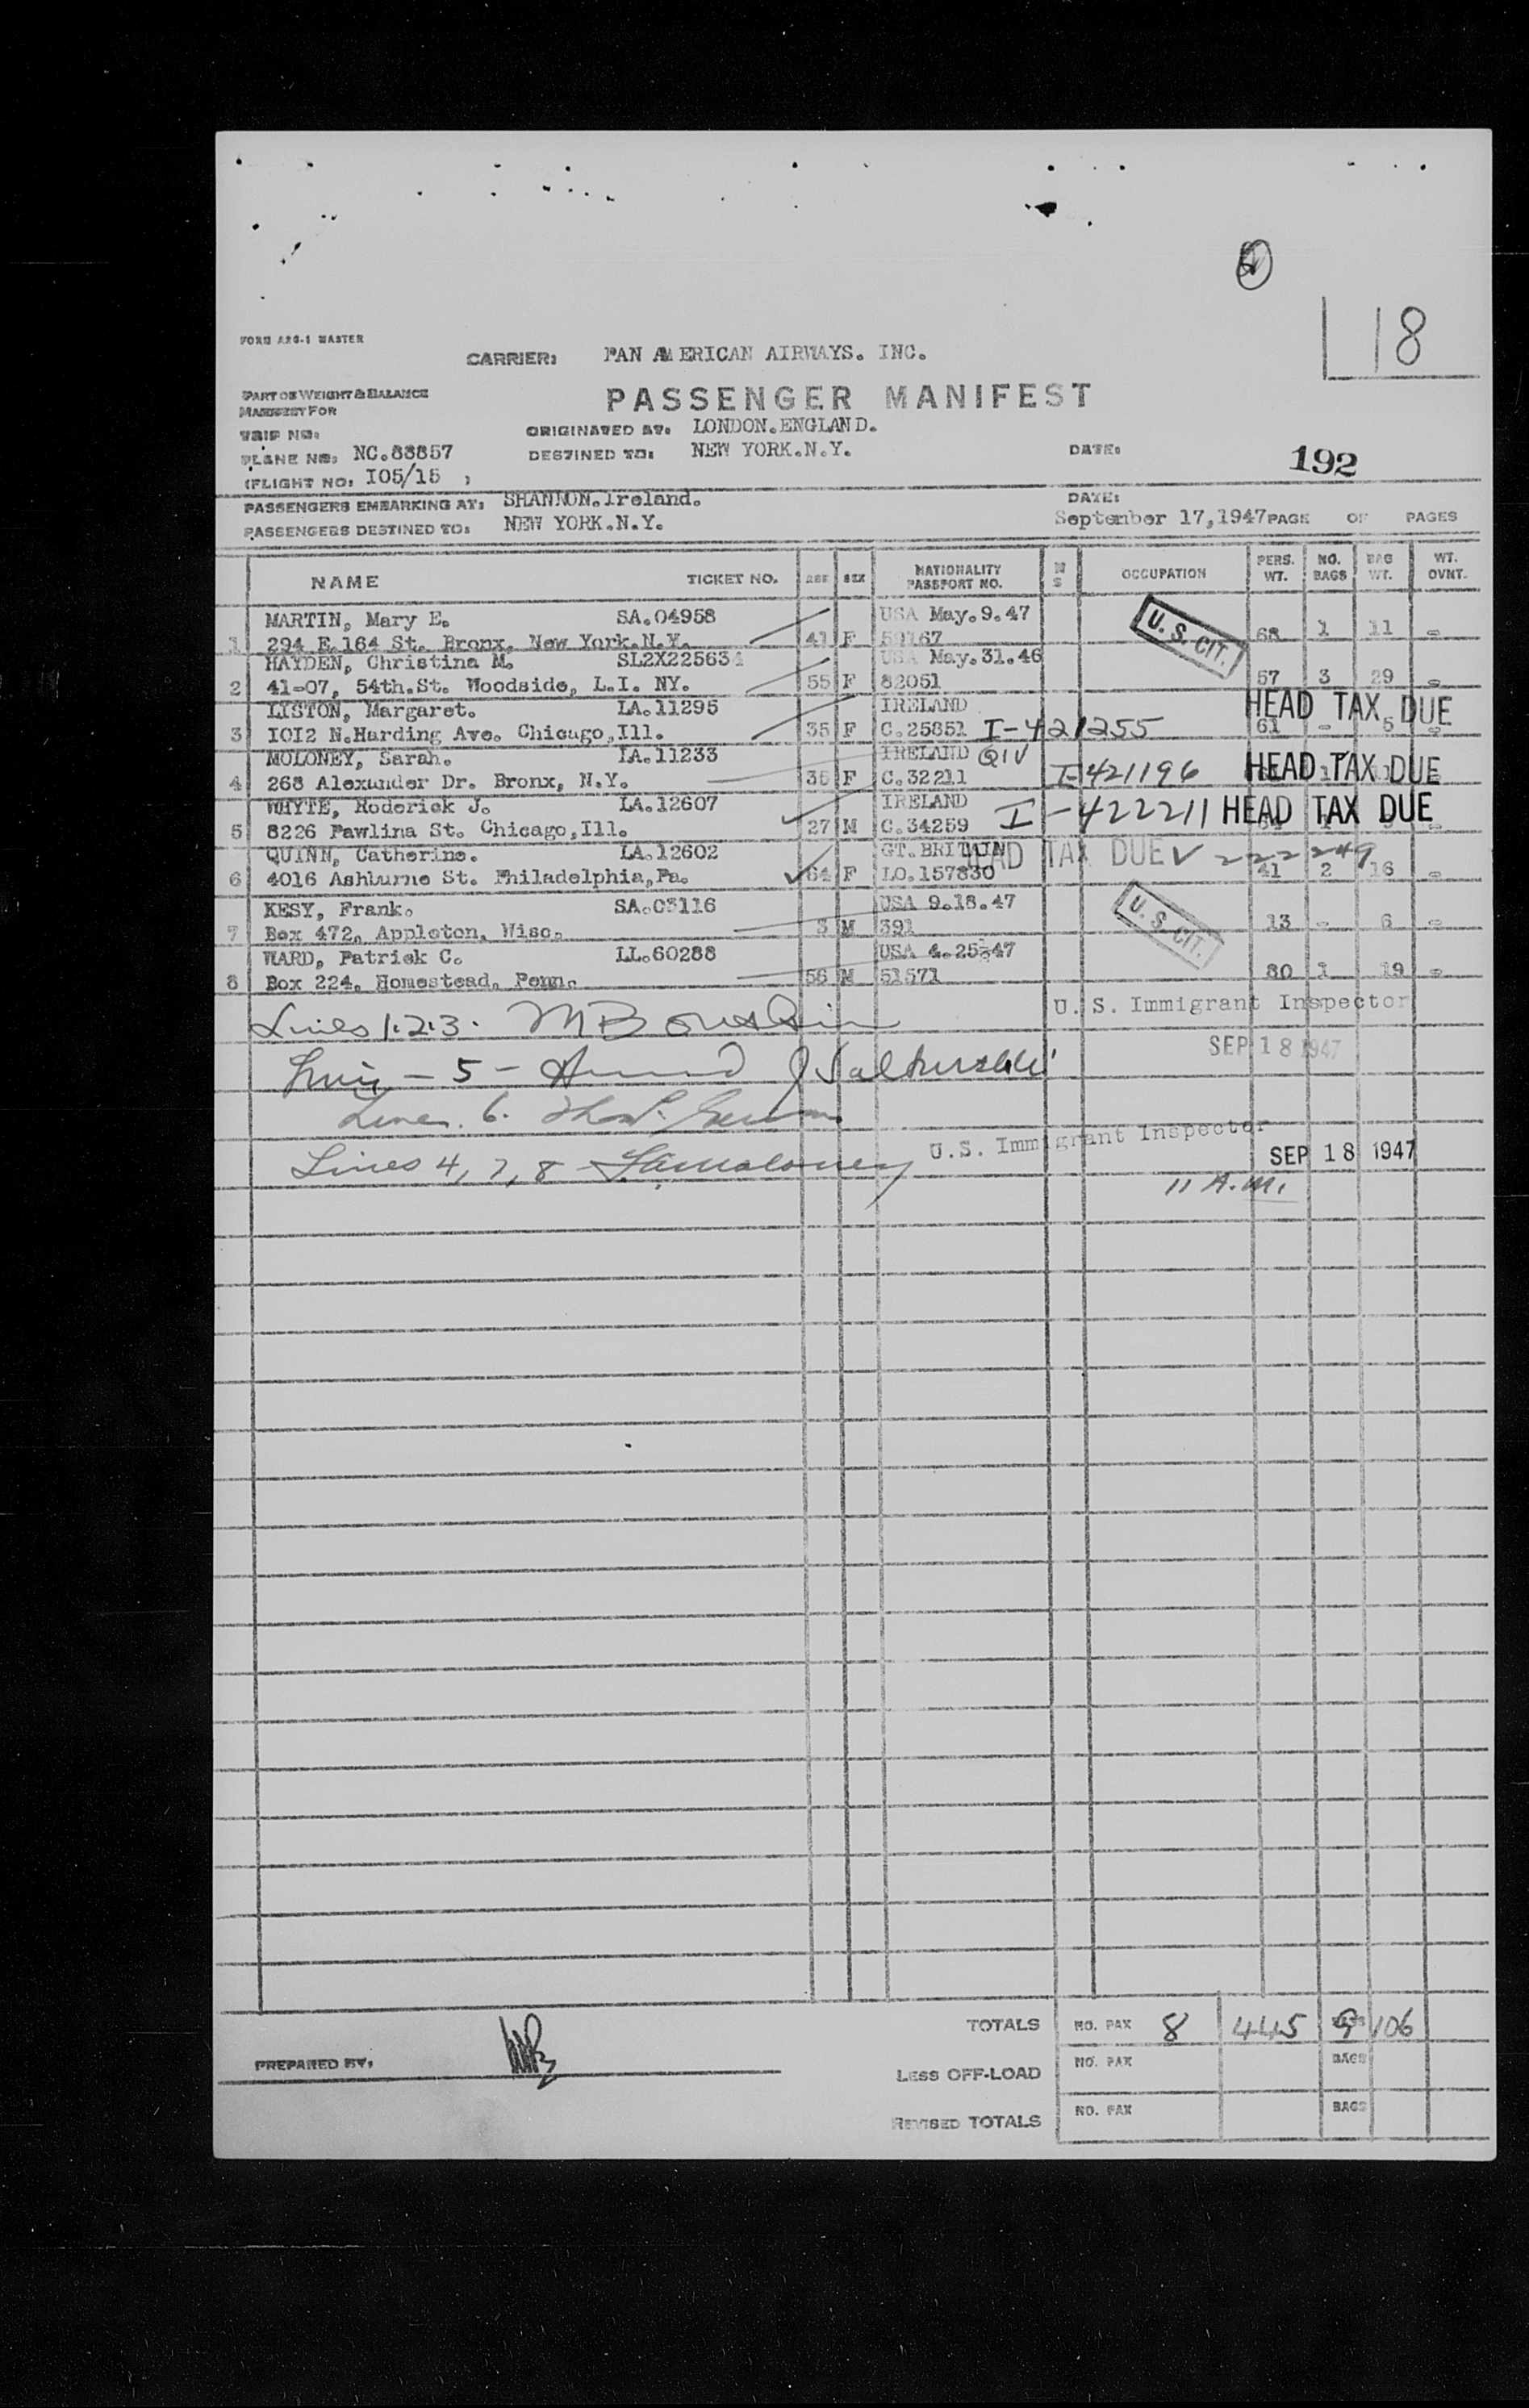 18
FORM ARG-1 MASTER
CARRIER: PAN AMERICAN AIRWAYS. INC.
PART OF WEIGHT & BALANCE
MANIFEST FOR
PASSENGER MANIFEST
TRIP NO:
ORIGINATED AT: LONDON.ENGLAND.
PLANE NO: NC.88857
DESTINED TO: NEW YORK.N.Y.
DATE:
192
(FLIGHT NO: I05/15 )
PASSENGERS EMBARKING AT: SHANNON.Ireland.
DATE:
PASSENGERS DESTINED TO: NEW YORK.N.Y.
September 17,1947 PAGE OF PAGES
NAME TICKET NO. AGE SEX NATIONALITY PASSPORT NO. M S OCCUPATION PERS. WT. NO. BAGS BAG WT. WT. OVNT.
MARTIN, Mary E. SA.04958 USA May.9.47 U. S. CIT.
1 294 E.164 St. Bronx, New York.N.Y. 41 F 59167 68 1 11 -
HAYDEN, Christina M. SL2X225634 USA May.31.46
2 41-07, 54th.St. Woodside, L.I. NY. 55 F 82051 57 3 29 -
LISTON, Margaret. LA.11295 IRELAND HEAD TAX DUE
3 IOI2 N.Harding Ave. Chicago,Ill. 35 F C.25851 I-421255 61 - 5 -
MOLONEY, Sarah. LA.11233 IRELAND QIV
4 268 Alexander Dr. Bronx, N.Y. 35 F C.32211 I-421196 HEAD TAX DUE
WHYTE, Roderick J. LA.12607 IRELAND
5 8226 Pawlina St. Chicago,Ill. 27 M C.34259 I-422211 HEAD TAX DUE
QUINN, Catherine. LA.12602 GT.BRITAIN HEAD TAX DUE V 222249
6 4016 Ashburne St. Philadelphia,Pa. 64 F LO.157830 41 2 16 -
KESY, Frank. SA.03116 USA 9.18.47 U. S. CIT.
7 Box 472, Appleton, Wisc. 3 M 391 13 - 6 -
WARD, Patrick C. LL.60288 USA 4.25.47
8 Box 224, Homestead, Penn. 56 M 51571 80 1 19 -
Lines 1.2.3.
U. S. Immigrant Inspector
SEP 18 1947
Line - 5 -
Lines 6.
U.S. Immigrant Inspector
Lines 4, 7, 8
SEP 18 1947
11 A.M.
TOTALS NO. PAX 8 445 BAGS 9 106
PREPARED BY:
LESS OFF-LOAD NO. PAX BAGS
REVISED TOTALS NO. PAX BAGS